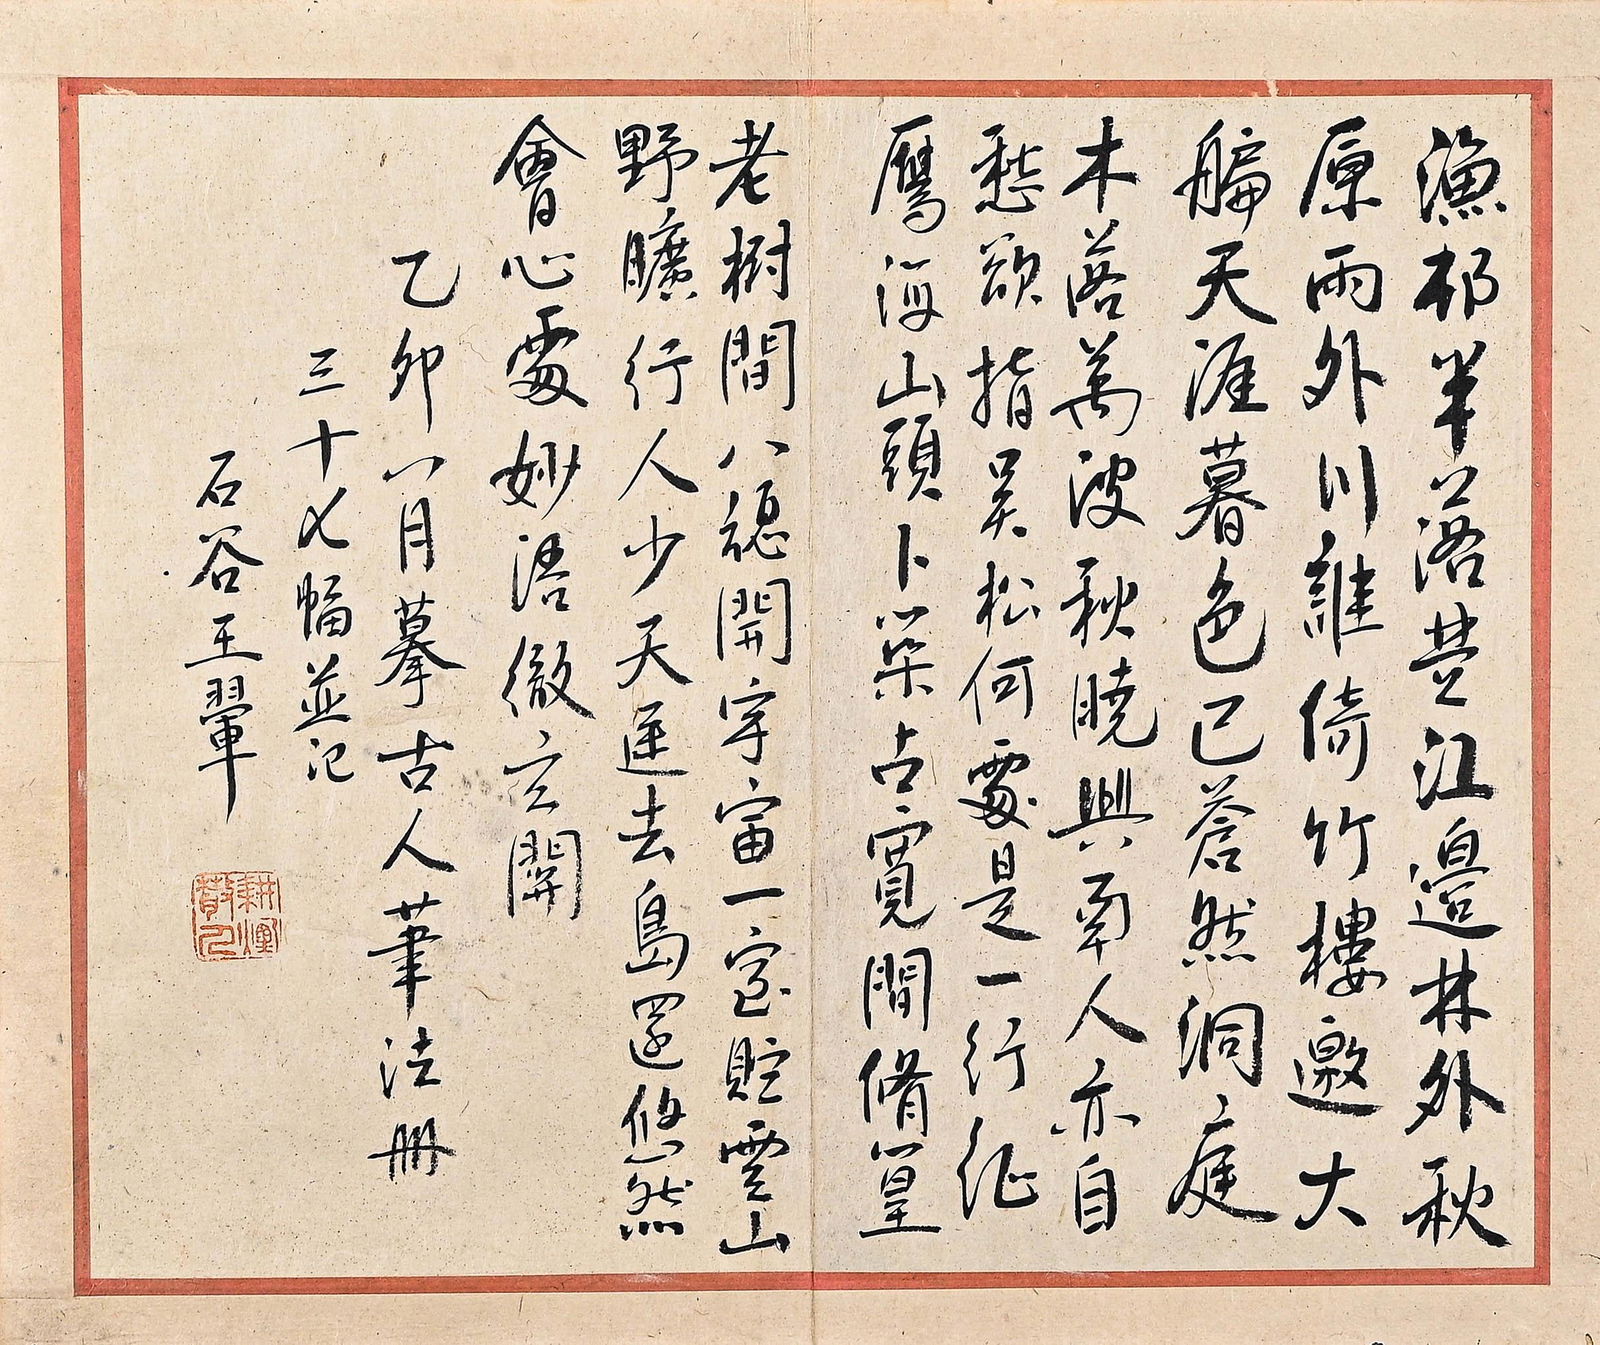 漁邨半落楚江邊林外秋
原雨外川誰倚竹樓邀大
艑天涯暮色已蒼然洞庭
木落萬波秋曉興南人亦自
愁欲指吴松何處是一行征
鴈海山頭卜築占寬閒脩篁
老樹間八牎開宇宙一室貯雲山
野曠行人少天遥去鳥還悠然
會心處妙語徹玄關
乙卯八月摹古人筆法册
三十七幅並记
石谷王翬
耕煙
散人